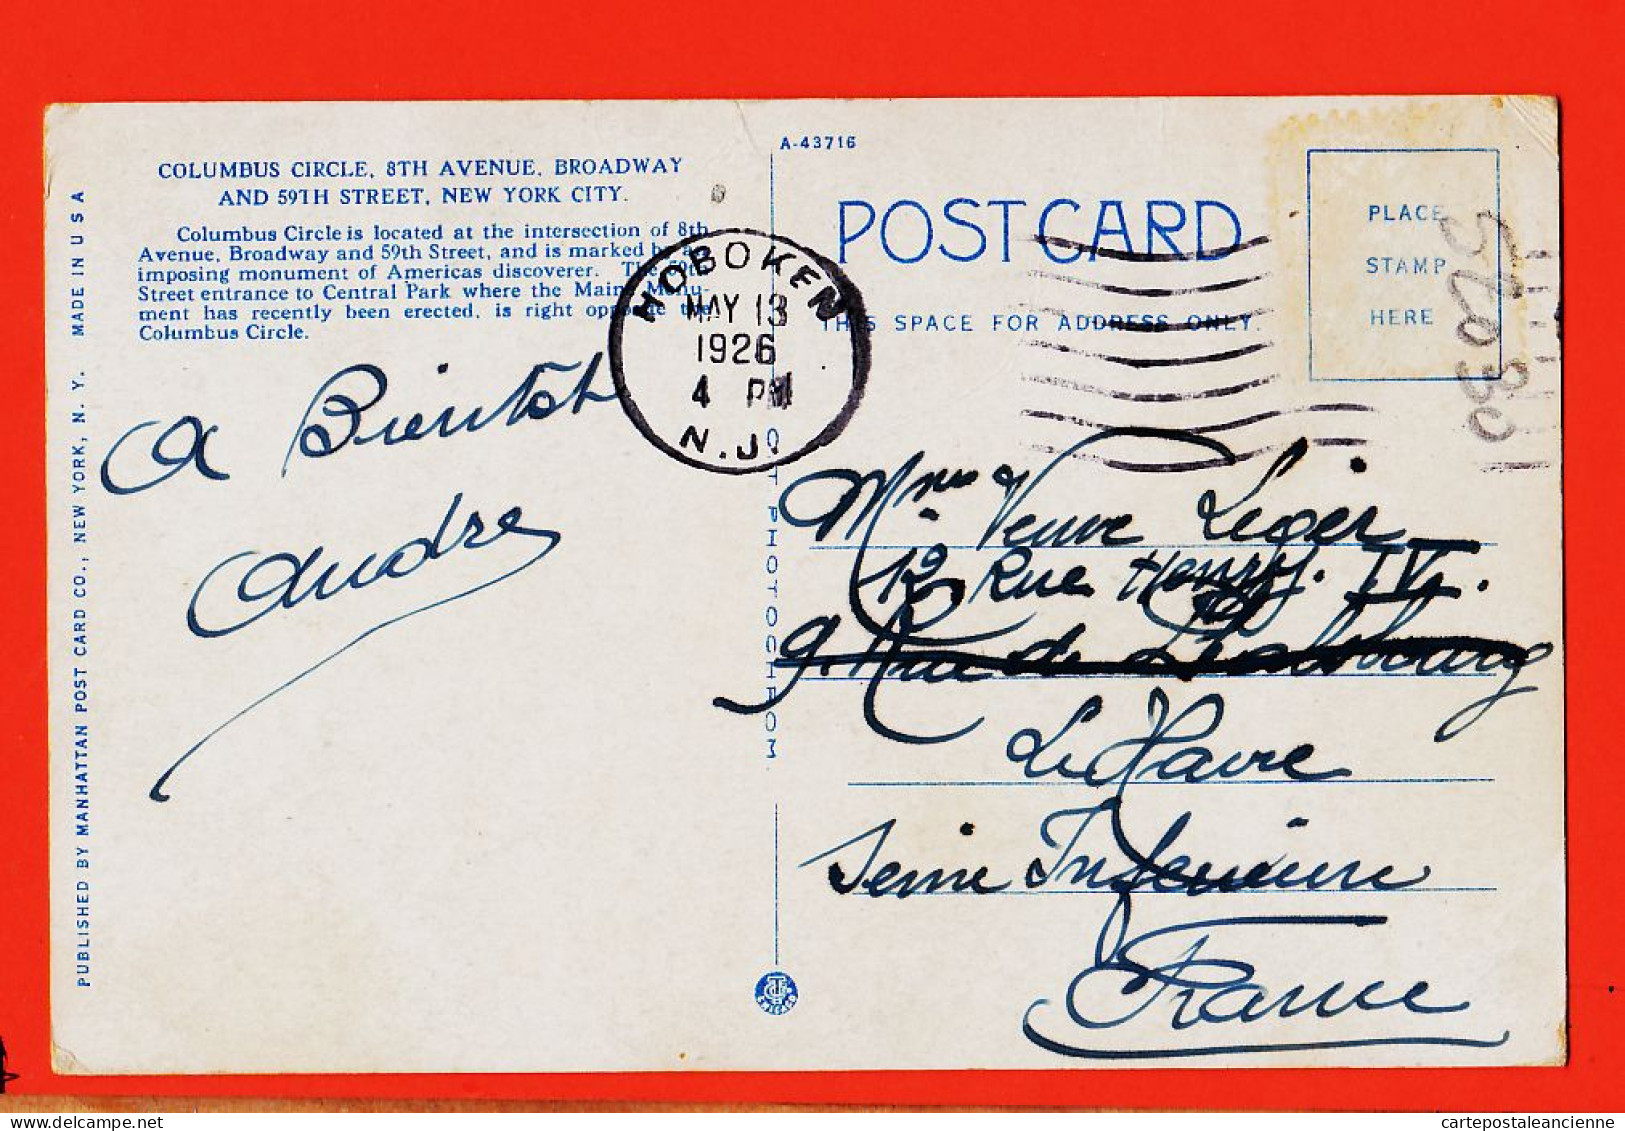 COLUMBUS CIRCLE, 8TH AVENUE, BROADWAY
AND 59TH STREET, NEW YORK CITY.
Columbus Circle is located at the intersection of 8th
Avenue, Broadway and 59th Street, and is marked by an
imposing monument of Americas discoverer. The 59th
Street entrance to Central Park where the Maine Monu-
ment has recently been erected, is right opposite the
Columbus Circle.
A Bientot
Andre
PUBLISHED BY MANHATTAN POST CARD CO., NEW YORK, N. Y. MADE IN U S A
A-43716
POST CARD
THIS SPACE FOR ADDRESS ONLY.
PLACE
STAMP
HERE
HOBOKEN
MAY 13
1926
4 PM
N.J.
Mme Veuve Leger
12 Rue Henry. IV.
9. Rue de
Le Havre
Seine Inferieure
France
cartepostaleancienne